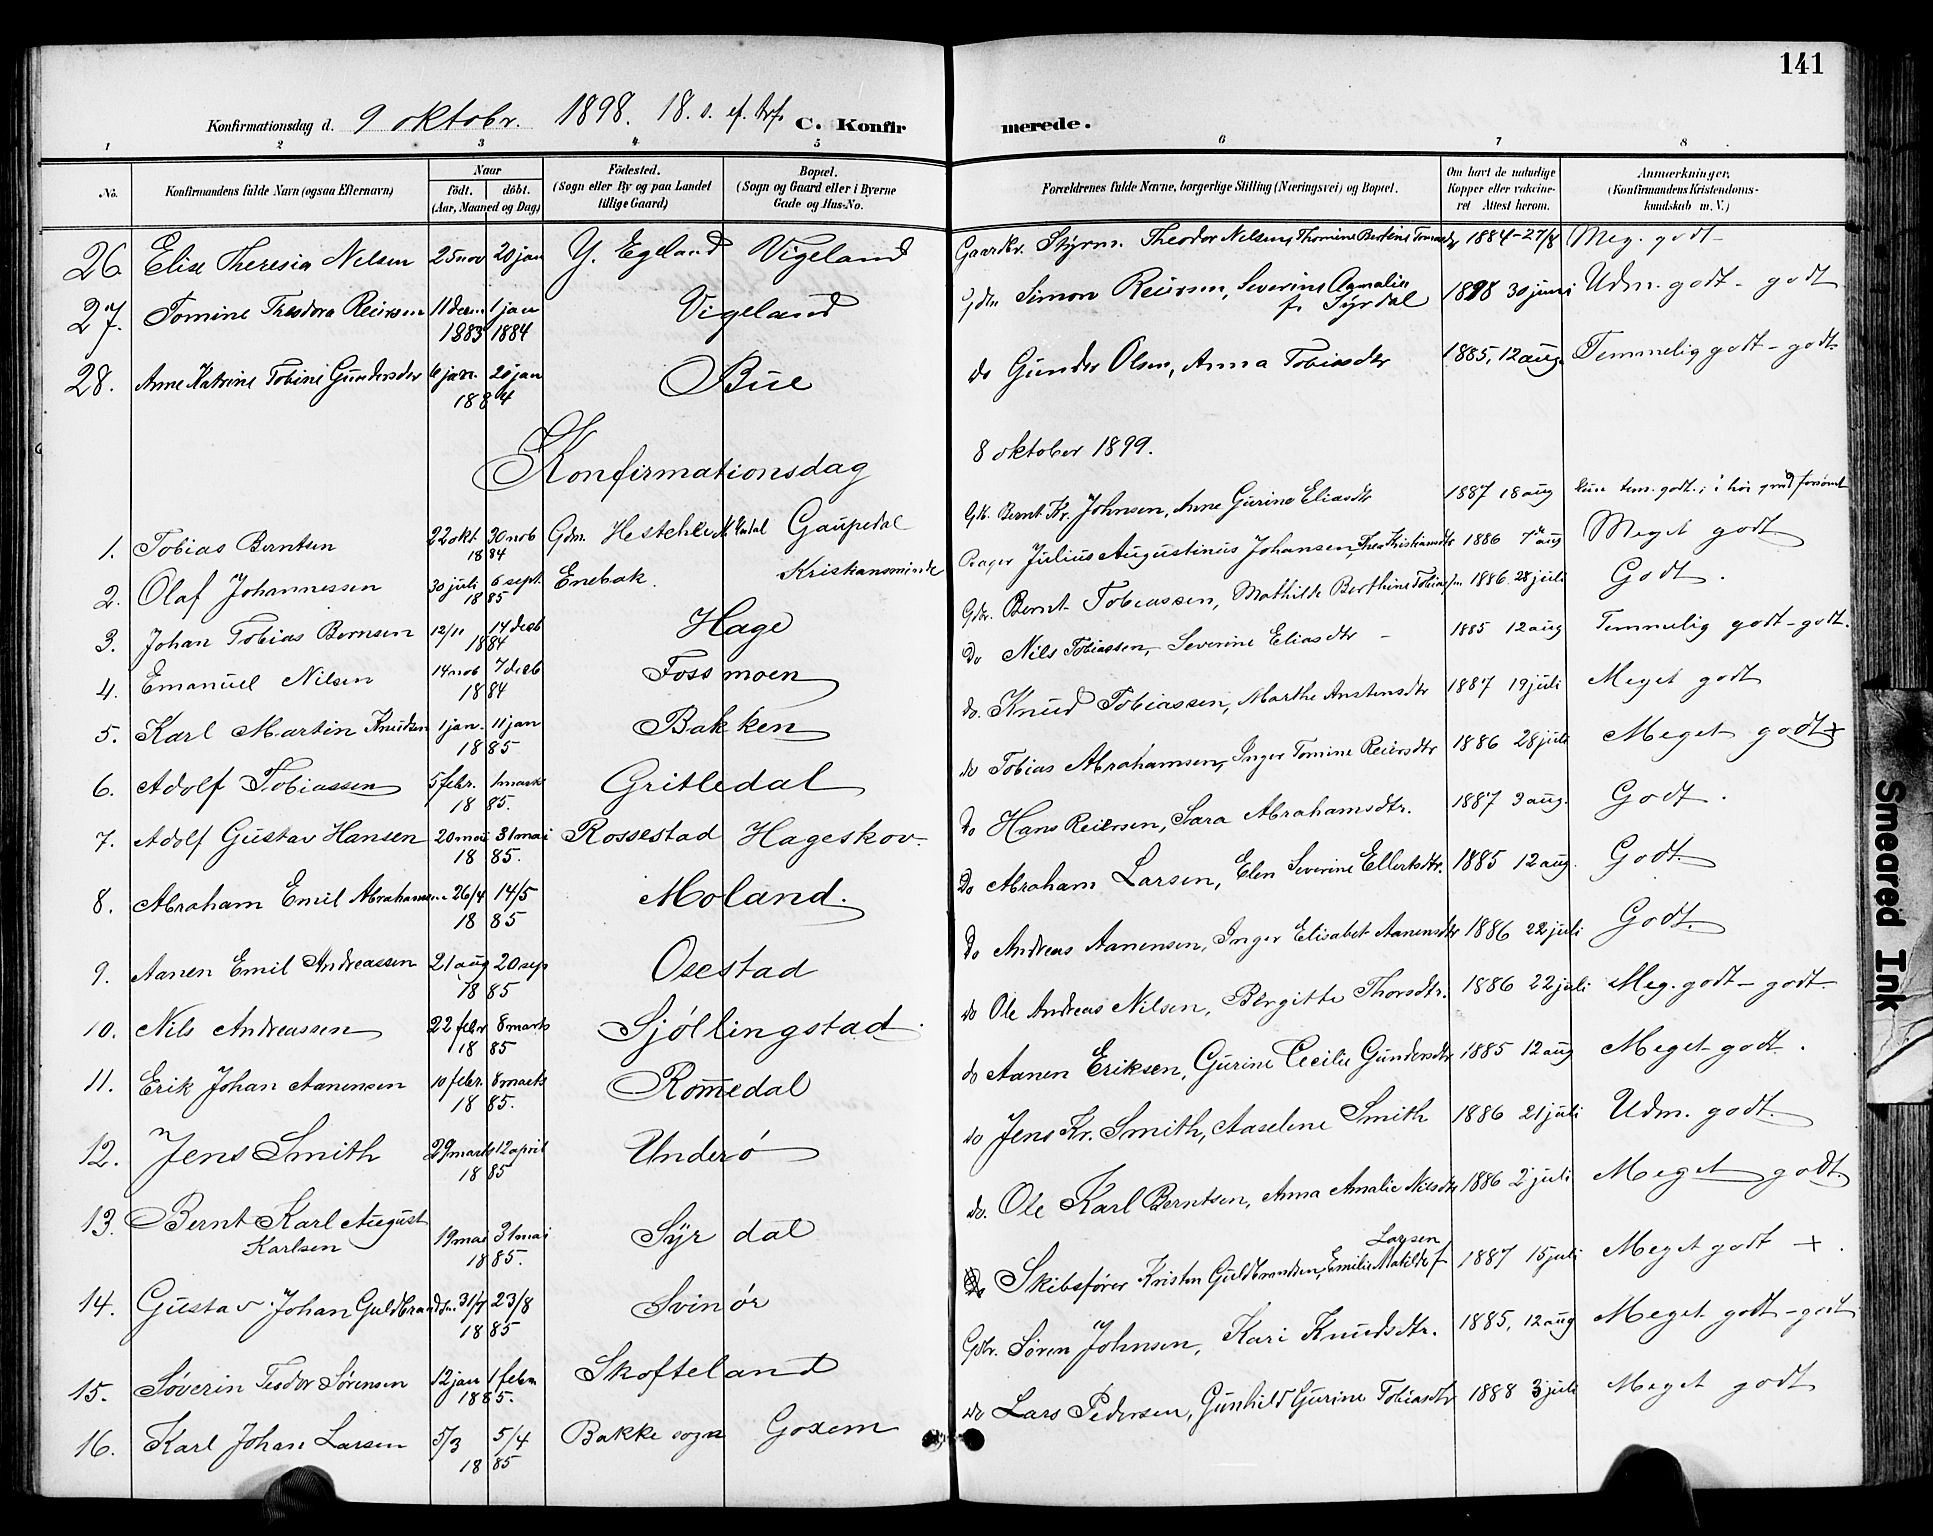 141
Konfirmationsdag d. 9 oktobr. 1898. 18. s. ef. C. Konfirmerede.
1 2 3 4 5 6 7 8
No. Konfirmandens fulde Navn (ogsaa Efternavn) Naar födt. döbt. (Aar, Maaned og Dag) Födested. (Sogn eller By og paa Landet tillige Gaard) Bopæl. (Sogn og Gaard eller i Byerne Gade og Hus-No. Forældrenes fulde Navne, borgerlige Stilling (Næringsvei) og Bopæl. Om havt de naturlige Kopper eller vakcineret Attest herom. Anmærkninger, (Konfirmandens Kristendomskundskab m. V.)
26. Elise Theresia Nelsen 25 nov 20 jan Y. Egeland Vigeland Gaardbr. Styrm. Theodor Nelsen, Thomine Bertine 1884-27/8 Meg. godt
27. Tomine Theodora Reiersen 11 decm 1883 1 jan 1884 Vigeland Simon Reiersen, Severine Amalie f. Syrdal 1898 30 juni Udm. godt - godt
28. Anne Katrine Tobine Gundersdtr 6 jan. 20 jan 1884 Büe do Gunder Olsen, Anna Tobiasdtr 1885, 12 aug. Temmelig godt - godt
Konfirmationsdag 8 oktober 1899.
1. Tobias Berntsen 22 okt 30 nob 1884 Gdm. Gaupedal Gbr. Bernt Kr. Johnsen, Anne Gurine Eliasdtr 1887 18 aug kun tem. godt; i høi grad forsømt
2. Olaf Johannessen 30 juli 6 sept. 1885 Enebak. Kristiansminde Bager Julius Augustinus Johansen, Thea Kristiansdtr 1886 7de aug Meget godt
3. Johan Tobias Bernsen 12/11 14 decb 1884 Hage Gdbr. Bernt Tobiassen, Mathilde Berthine 1886. 28 juli Godt.
4. Emanuel Nilsen 14 nob 7 decb 1884 Fossmoen Do Nils Tobiassen, Severine Eliasdtr - 1885 12 aug Temmelig godt - godt.
5. Karl Martin Knudsen 1 jan. 11 jan 1885 Bakken do. Knud Tobiassen, Marthe Anstensdtr 1887 19 juli Meget godt
6. Adolf Tobiassen 5 febr. 1 marts 1885. Gritledal do Tobias Abrahamsen, Inger Tomine Reiersdtr 1886 28 juli Meget godt x
7. Adolf Gustav Hansen 20 mai 31 mai 1885. Rossestad Hageskov. Do Hans Reiersen, Sara Abrahamsdtr. 1887 3 aug. Godt.
8. Abraham Emil Abrahamsen 26/4 14/5 1885 Moland. Do Abraham Larsen, Elen Severine Ellertsdtr. 1885 12 aug. Godt.
9. Aanen Emil Andreassen 21 aug 20 sep 1885 Osestad Do Andreas Aanensen, Inger Elisabet Aanensdtr 1886 22 juli Godt.
10. Nils Andreassen 22 febr 8 marts 1885 Sjöllingstad. do Ole Andreas Nilsen, Birgitte Thorsdtr. 1886 22 juli Meg. godt - godt.
11. Erik Johan Aanensen 10 febr. 8 marts 1885. Rømedal do Aanen Eriksen, Gurine Cecilie Gundersdtr 1885 12 aug Meget godt.
12. Jens Smith 29 marts 12 april 1885 Underö do Jens Kr. Smith, Aaselene Smith 1886 21 juli Udm. godt.
13. Bernt Karl August Karlsen 19 mai 31 mai 1885. Syrdal do. Ole Karl Berntsen, Anna Amalie Nilsdtr 1886 2 juli Meget godt.
14. Gustav Johan Guldbrandsn. 31/7 23/8 1885 Svinör Skibsfører Kristen Guldbrandsen, Emilie Matilde f. Larsen 1887 15 juli Meget godt x.
15. Söverin Teodor Sörensen 12 jan 1 febr 1885. Skofteland Gdbr. Sören Johnsen, Kari Knudsdtr. 1885, 12 aug Meget godt - godt
16. Karl Johan Larsen 5/3 5/4 1885 Bakke sogn Goxem do Lars Pedersen, Gunhild Gurine Tobiasdtr 1888 3 juli Meget godt
Smeared Ink